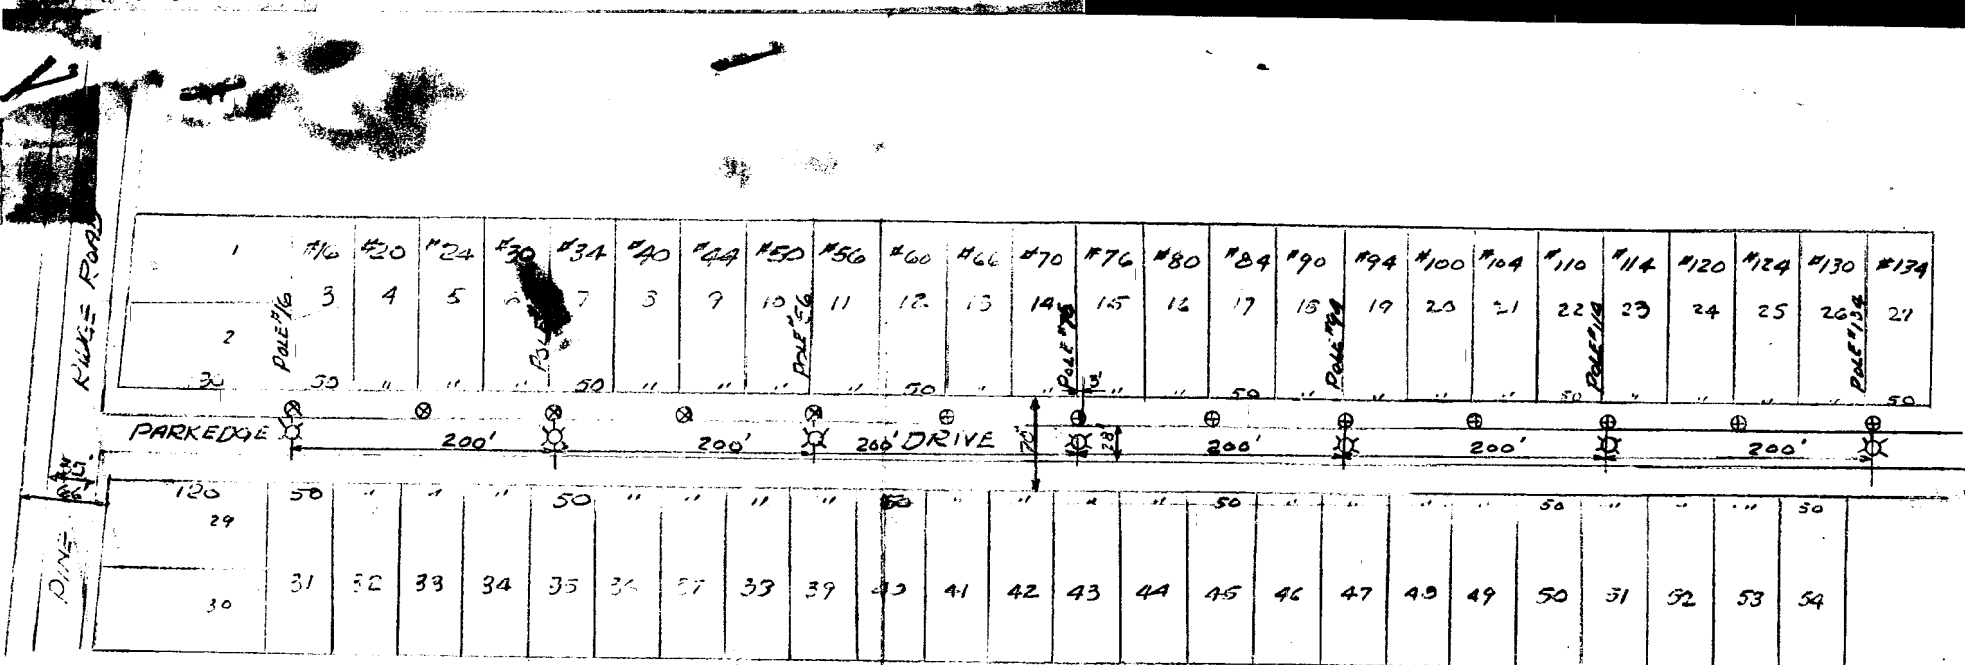 1 #16 #20 "24 #30 #34 #40 #44 #50 #56 #60 #66 #70 #76 #80 #84 #90 #94 #100 #104 #110 #114 #120 #124 #130 #134
3 4 5 7 8 9 10 11 12 13 14 15 16 17 18 19 20 21 22 23 24 25 26 27
2
POLE#16
POLE
POLE#56
POLE#76
POLE#94
POLE#114
POLE#134
50 " " " 50 " " " " 50 " " " " 50 " " " " 50 " " " " 50
3'
PARKEDGE DRIVE
200' 200' 200' 200' 200' 200'
70'
28'
66'
PINE RIDGE ROAD
120 50 " " " 50 " " " " 50 " " " " 50 " " " " 50 " " " 50
29
31 32 33 34 35 36 37 38 39 40 41 42 43 44 45 46 47 48 49 50 51 52 53 54
30